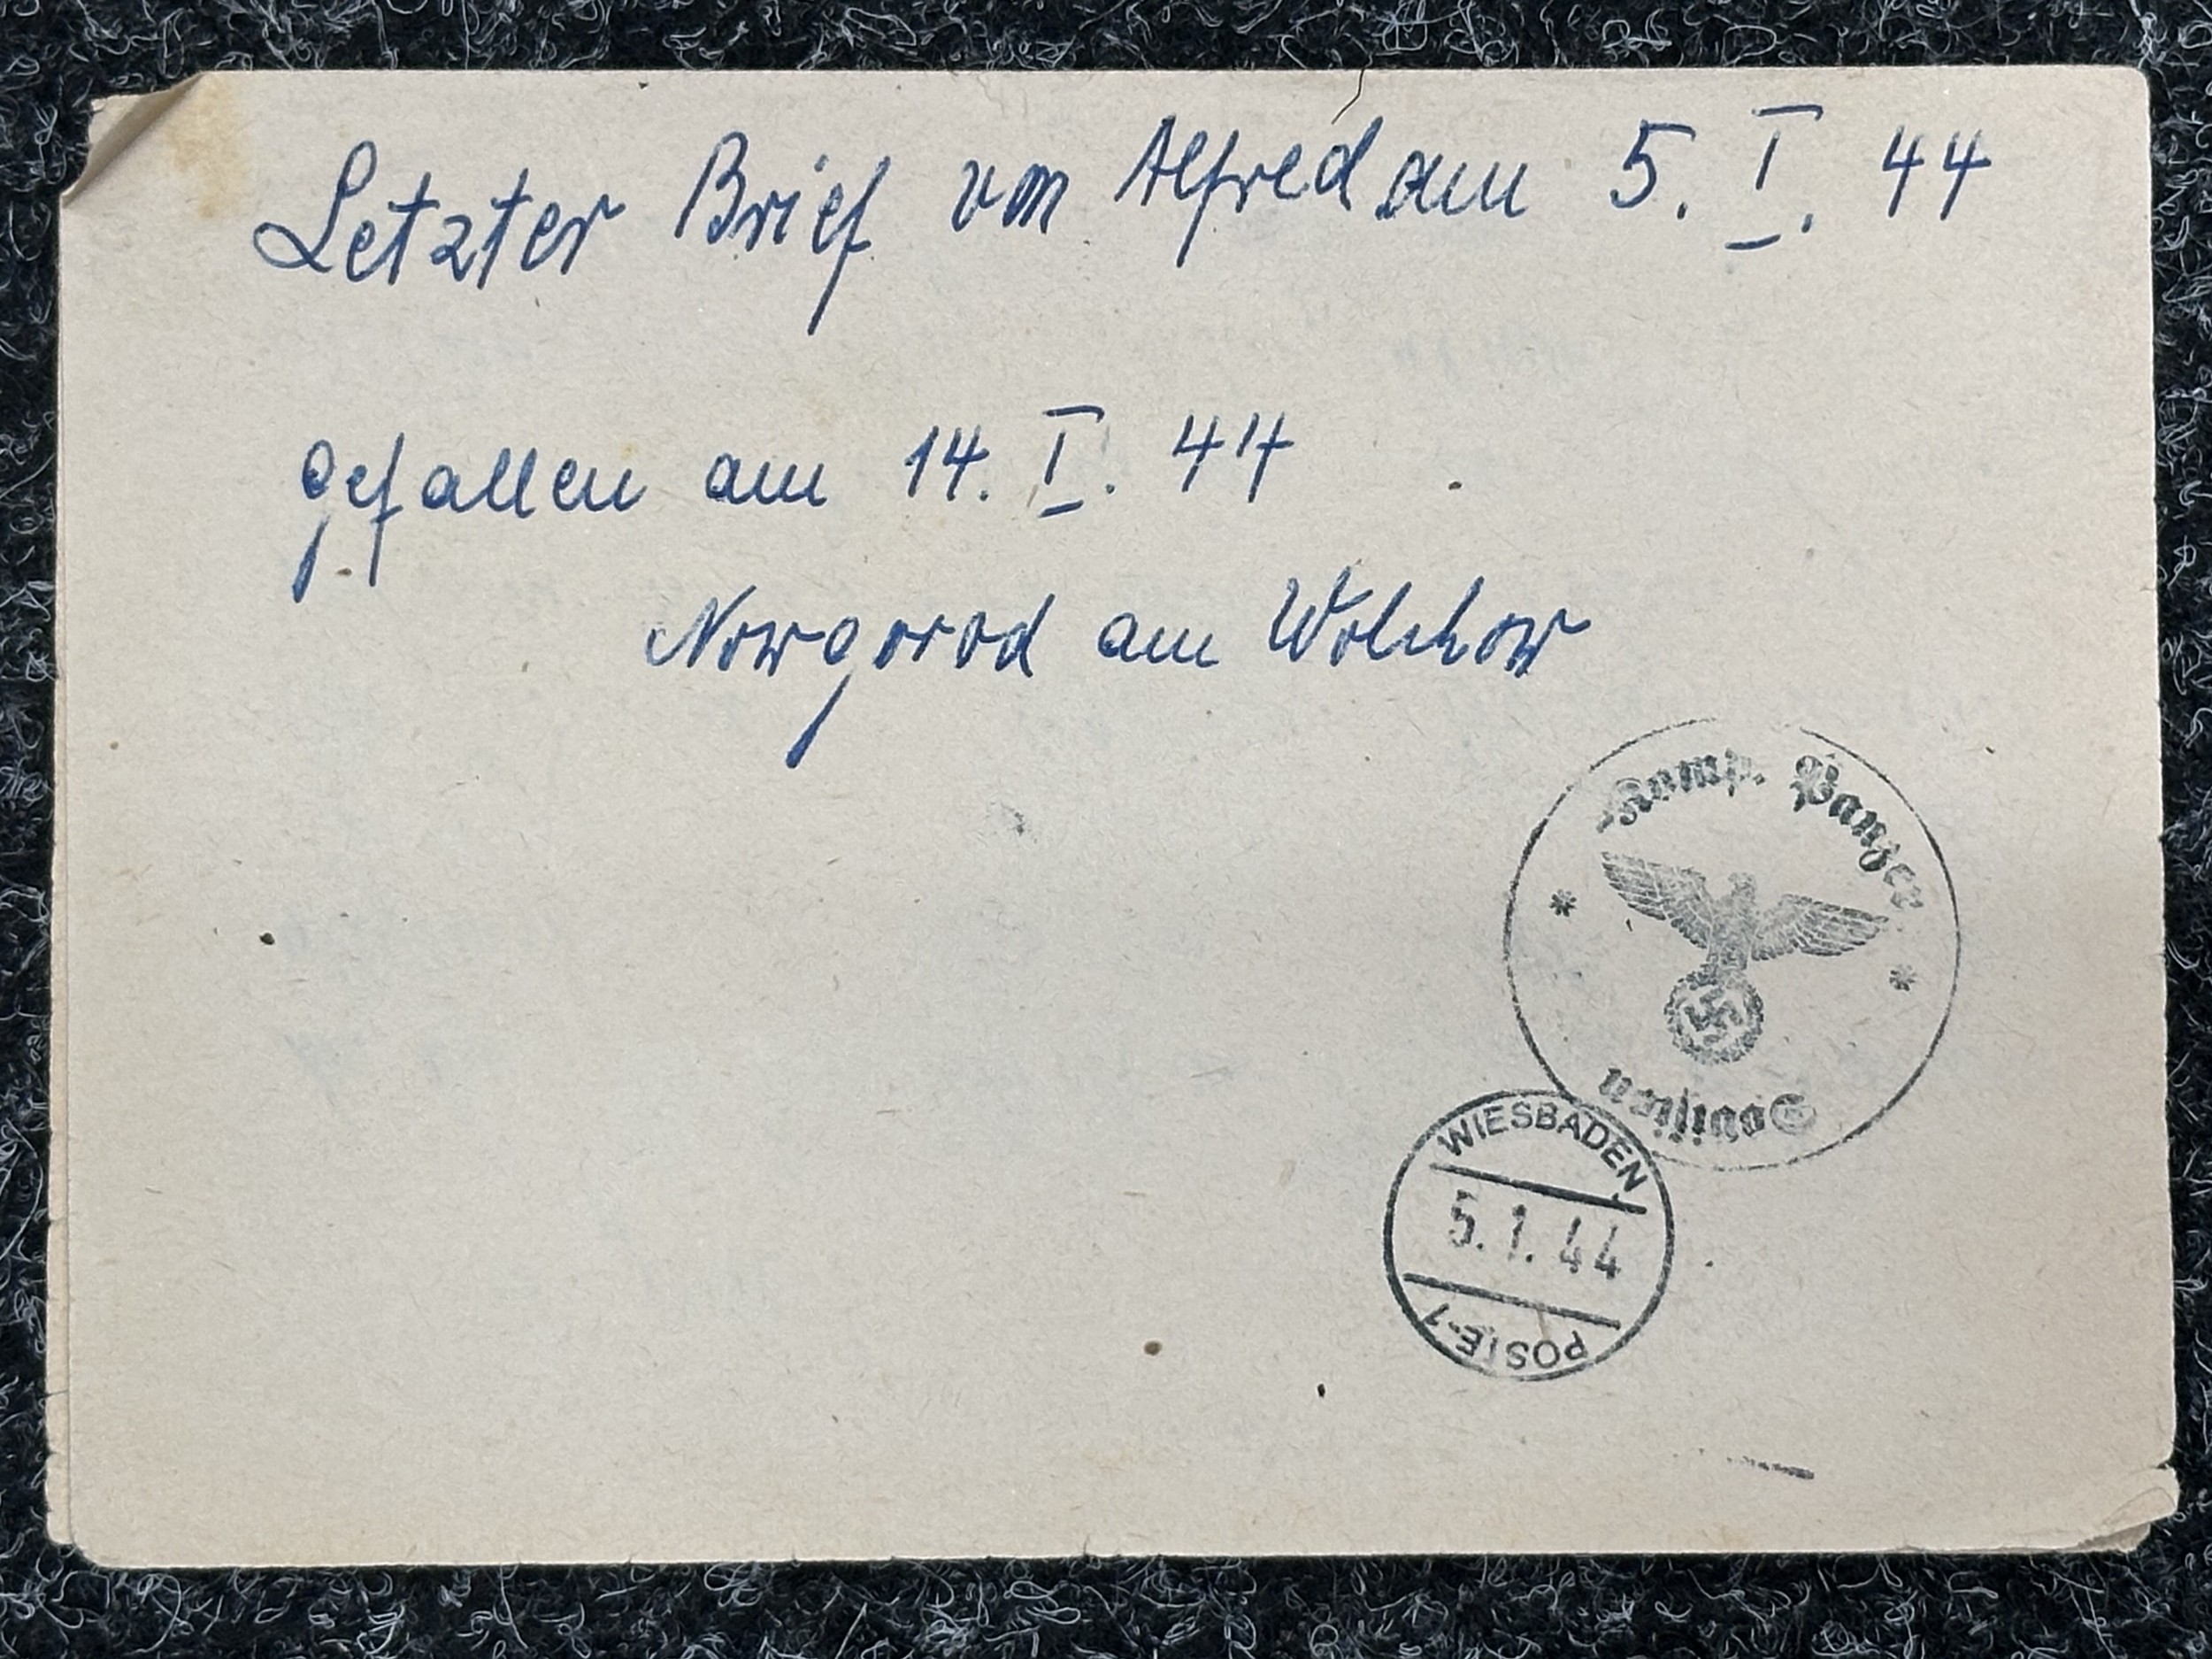 Letzter Brief von Alfred am 5. I. 44
gefallen am 14. I. 44
Nowgorod am Wolchow
Komp. Panzer
WIESBADEN
5.1.44